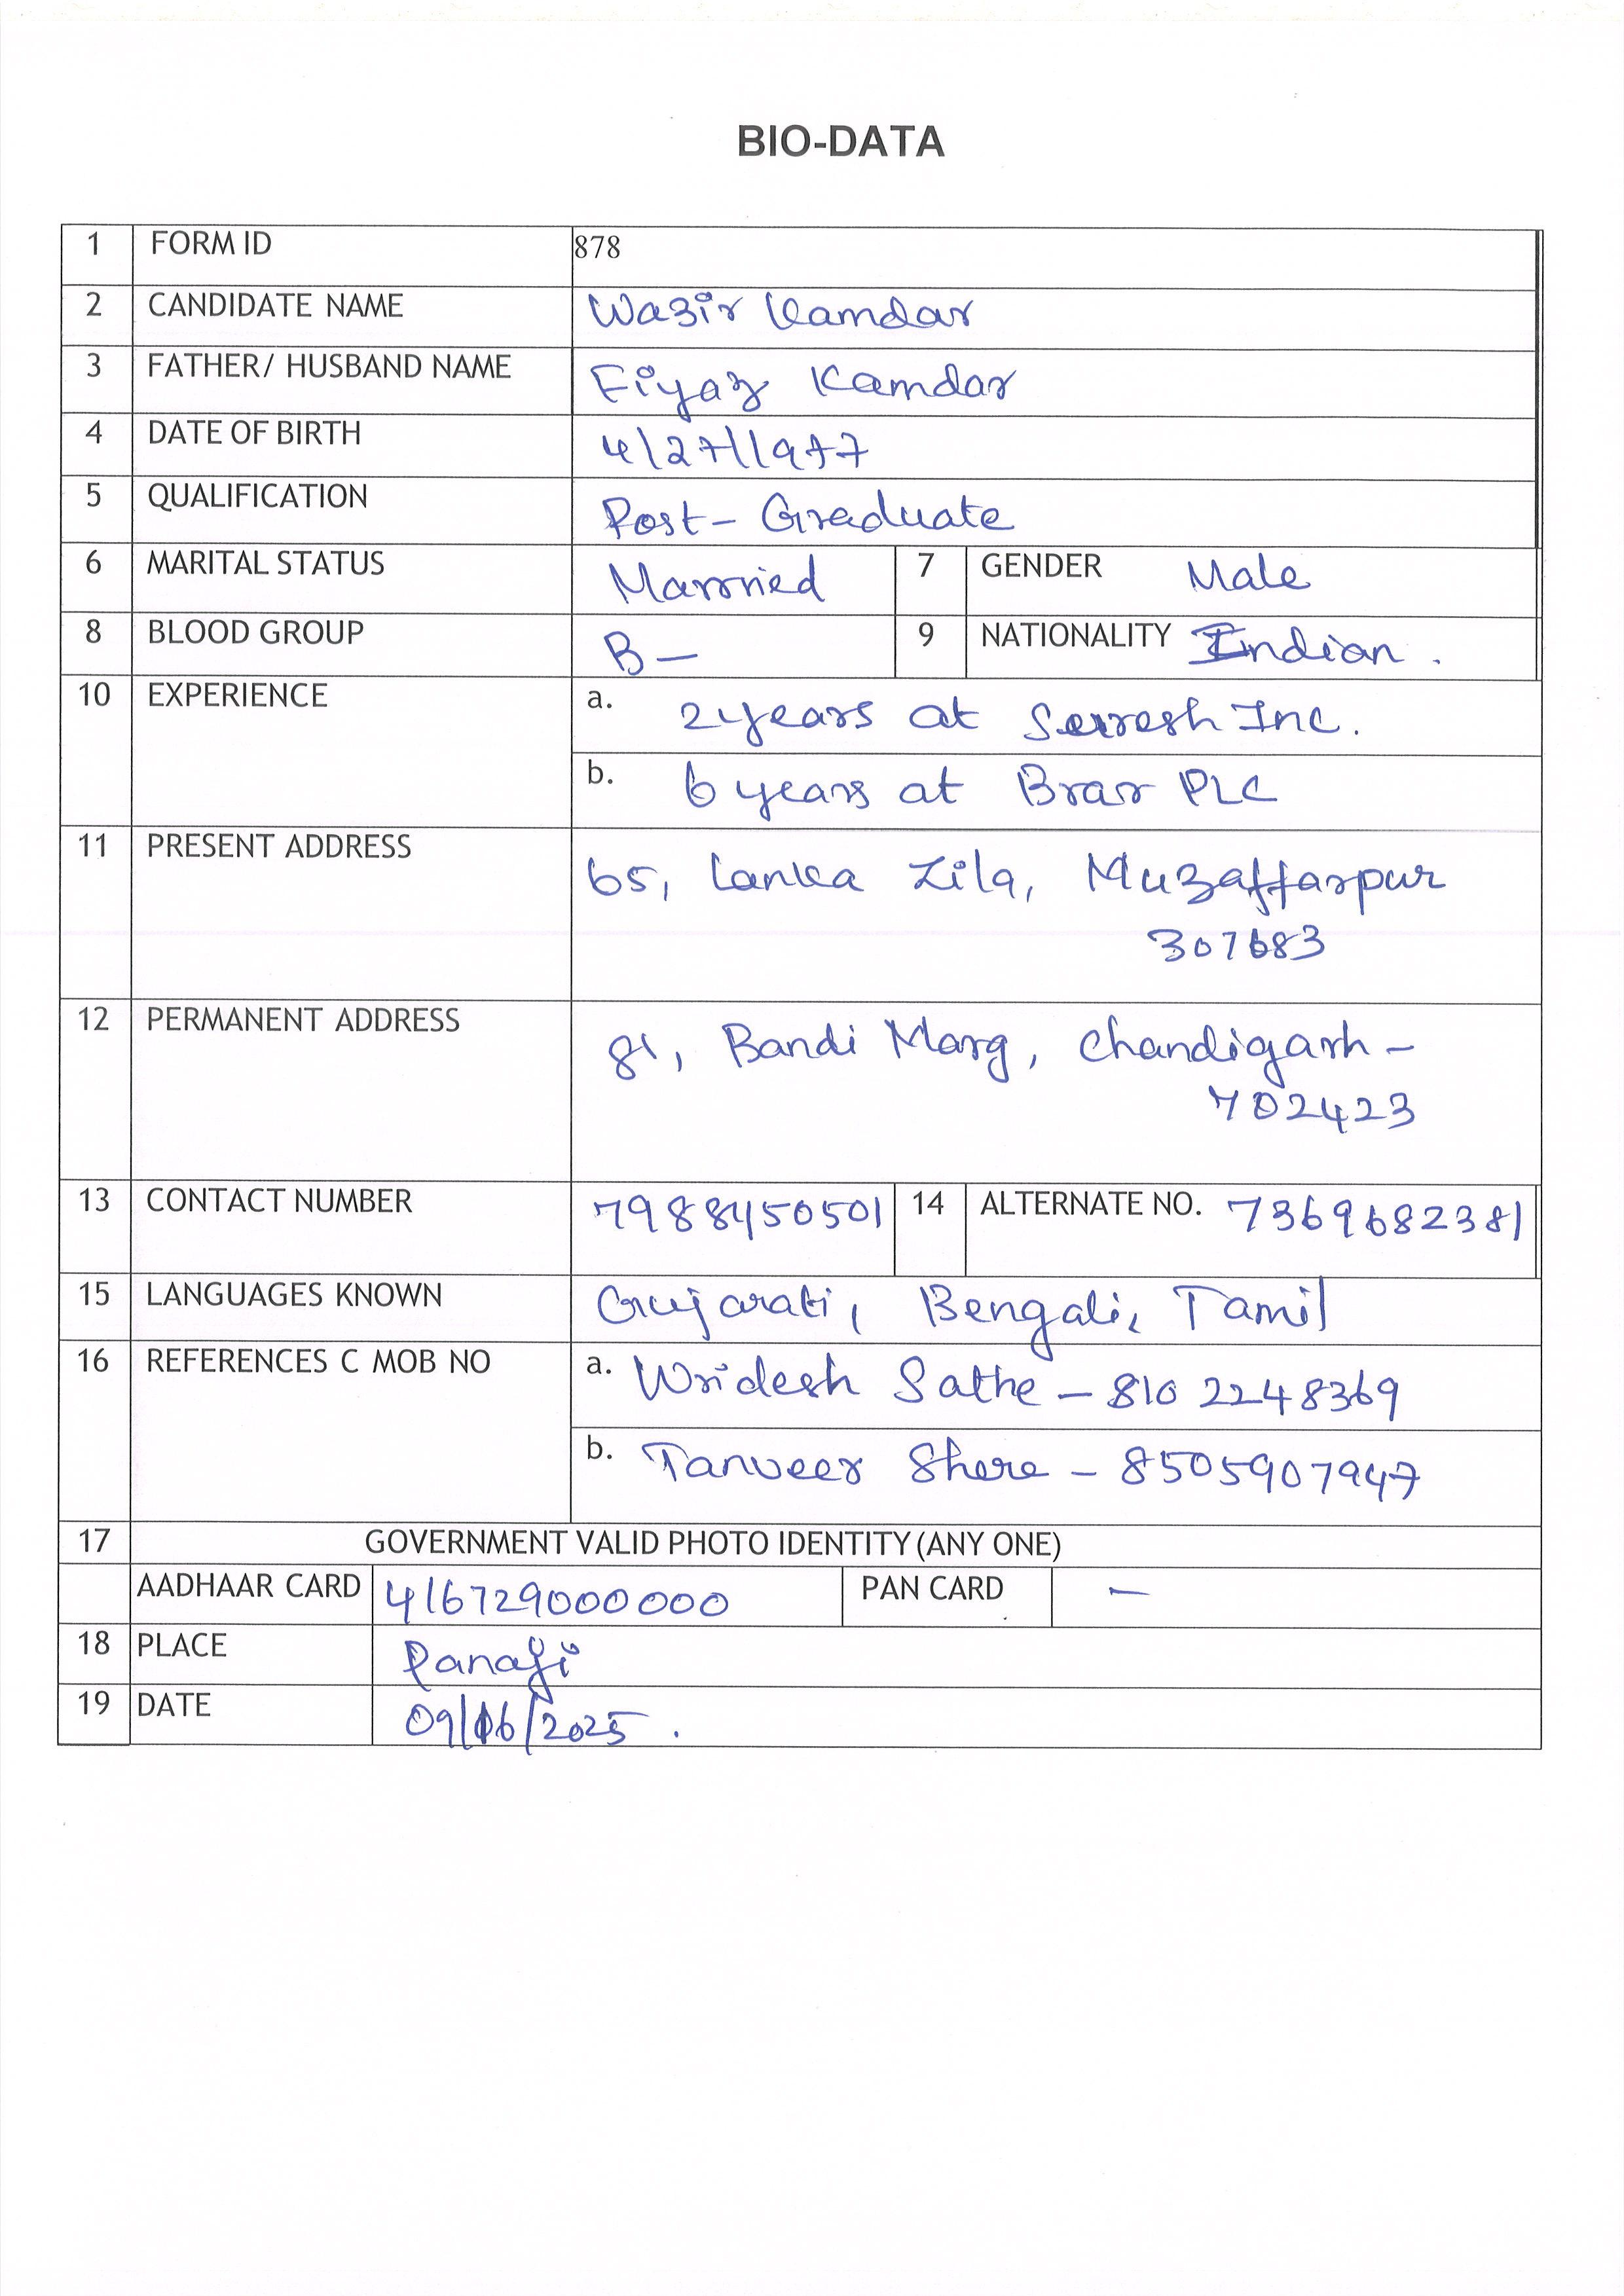 BIO-DATA
1 FORM ID 878
2 CANDIDATE NAME Wazir Kamdar
3 FATHER/ HUSBAND NAME Fiyaz Kamdar
4 DATE OF BIRTH 4/27/1977
5 QUALIFICATION Post-Graduate
6 MARITAL STATUS Married 7 GENDER Male
8 BLOOD GROUP B- 9 NATIONALITY Indian.
10 EXPERIENCE a. 2 years at Inc.
b. 6 years at Brar PLC
11 PRESENT ADDRESS 65, Lanka Zila, Muzaffarpur
307683
12 PERMANENT ADDRESS 81, Bandi Marg, Chandigarh -
702423
13 CONTACT NUMBER 7988450501 14 ALTERNATE NO. 7369682381
15 LANGUAGES KNOWN Gujarati, Bengali, Tamil
16 REFERENCES C MOB NO a. Wridesh Sathe - 8102248369
b. Tanveer Shere - 8505907947
17 GOVERNMENT VALID PHOTO IDENTITY (ANY ONE)
AADHAAR CARD 416729000000 PAN CARD -
18 PLACE Panaji
19 DATE 09/06/2025.